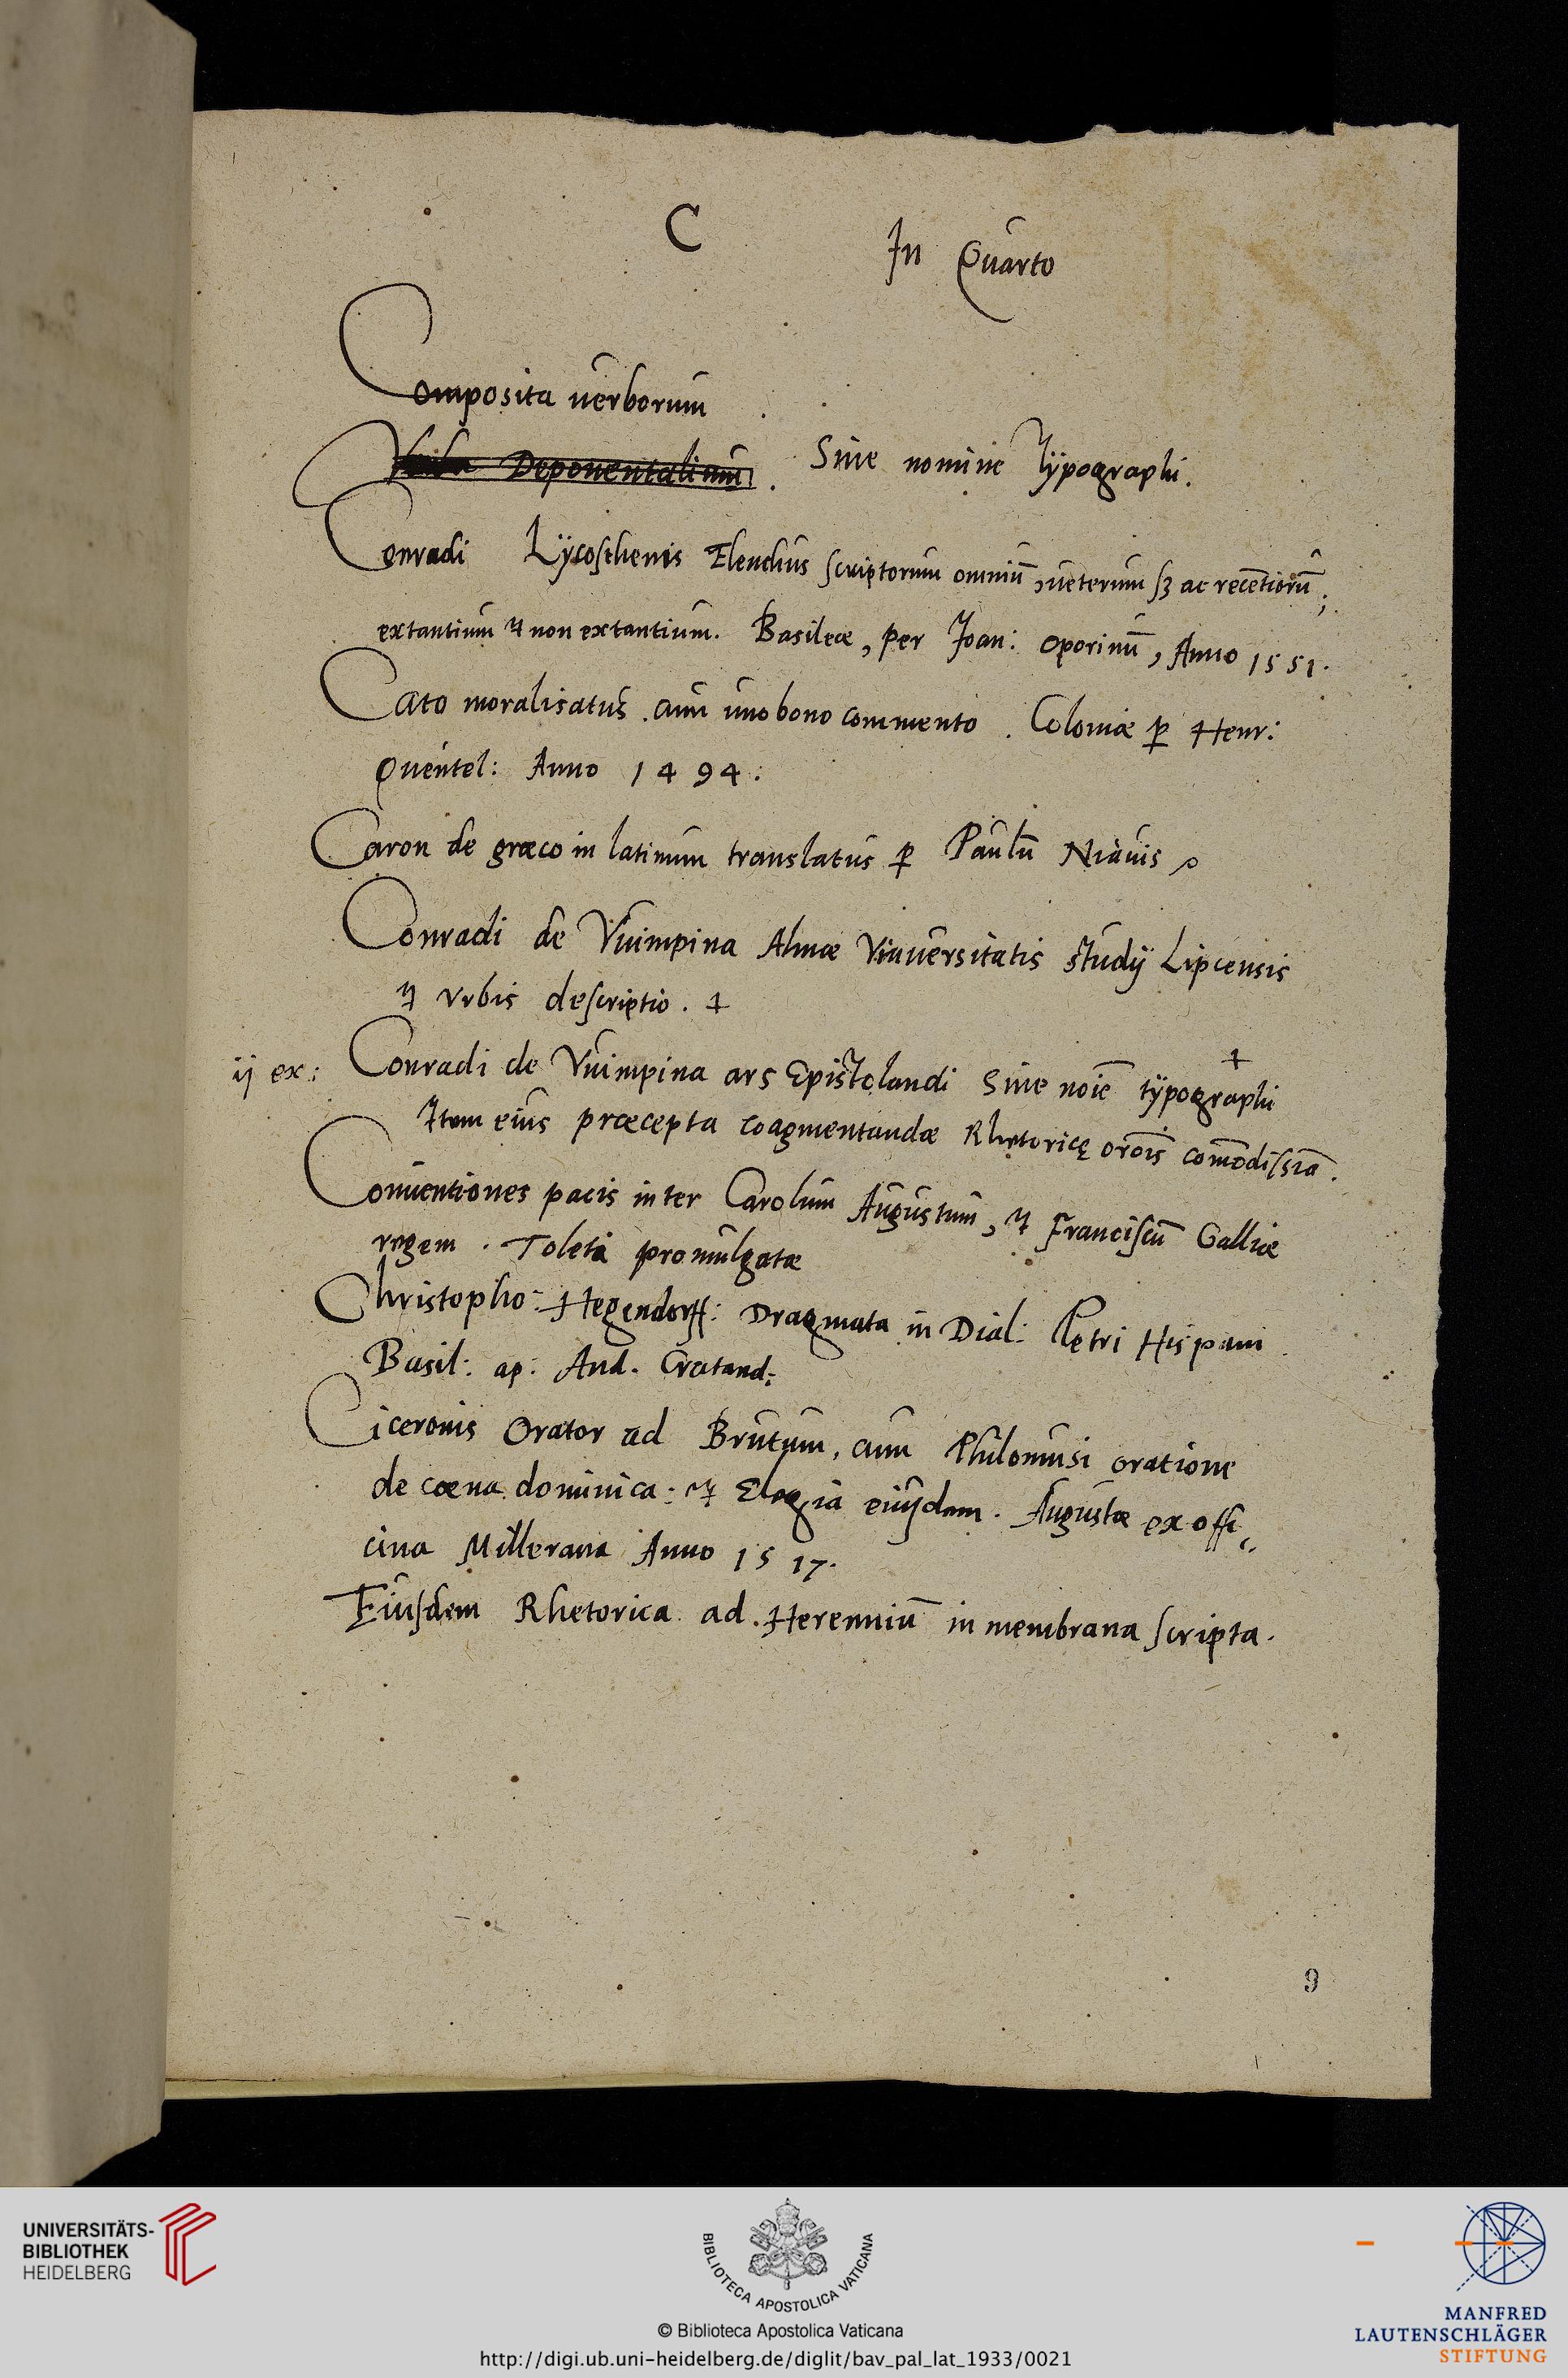 C In Quarto
Composita uerborum .
Deponentalium . Sine nomine Typographi.
Conradi Lycosthenis Elenchus scriptorum omniū, ueterum sꝫ ac recētiorū,
extantium & non extantium. Basileæ, per Joan: Oporinū, Anno 1551.
Cato moralisatus cum uno bono commento . Coloniæ ꝑ Henr:
Quentel: Anno 1494:
Caron de græco in latinum translatus ꝑ Paulū Niauis
Conradi de Vuimpina Almæ Vniuersitatis studÿ Lipcensis
& Vrbis descriptio. ‡
ij ex: Conradi de Vuimpina ars Epistolandi Sine noīe tÿpographi ‡
Item eius præcepta coagmentandæ Rhetoricę orōis com̄odissīa.
Conuentiones pacis inter Carolum Augustum, & Franciscū Galliæ
regem . Toleti promulgatæ
Christopho: Hegendorff: Dragmata in Dial: Petri Hispani
Basil: ap: And. Cratand:
Ciceronis Orator ad Brutum, cum Philomusi oratione
de cœna dominica: & Elegia eiusdem. Augustæ ex offi„
cina Millerana Anno 1517.
Eiusdem Rhetorica ad Herenniū in membrana scripta.
9
UNIVERSITÄTS-
BIBLIOTHEK
HEIDELBERG
BIBLIOTECA APOSTOLICA VATICANA
© Biblioteca Apostolica Vaticana
http://digi.ub.uni-heidelberg.de/diglit/bav_pal_lat_1933/0021
MANFRED
LAUTENSCHLÄGER
STIFTUNG